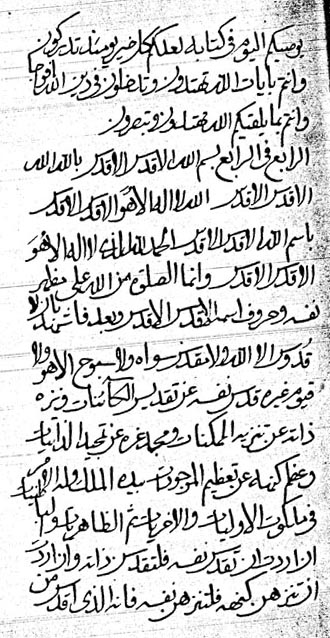 يوصيكم اليوم فى كتابه لعلكم كل خير يومئذ تدركون
وانتم بايات الله تهتدون وتدخلون فى دين الله افواجا
وانتم بما يلقيكم الله تهتدون وتنصرون
الرابع فى الرابع بسم الله الاقدس الاقدس بالله الله
الاقدس الاقدس الله لا اله الا هو الاقدس الاقدس
باسم الله الاقدس الاقدس الحمد لله الذى لا اله الا هو
الاقدس الاقدس وانما الصلوة من الله على مظهر
نفسه وحروف اسمه الاقدس الاقدس وبعد فاشهد بان لا
قدوس الا الله ولا مقدس سواه ولا سبوح الا هو ولا
قيوم غيره قدس نفسه عن تقديس الكائنات ونزه
ذاته عن تنزيه الممكنات ومجد عن تمجيد الذاتيات
وعظم كنهه عن تعظيم الموجودات بيده الملك وله الامر
فى ملكوت الاوليات والاخريات ثم الظاهريات والباطنيات
ان اردت ان تقدس نفسه فلتقدس ذاته وان اردت
ان تنزهن كنهه فلتنزهن نفسه فانه الذى اقدس من